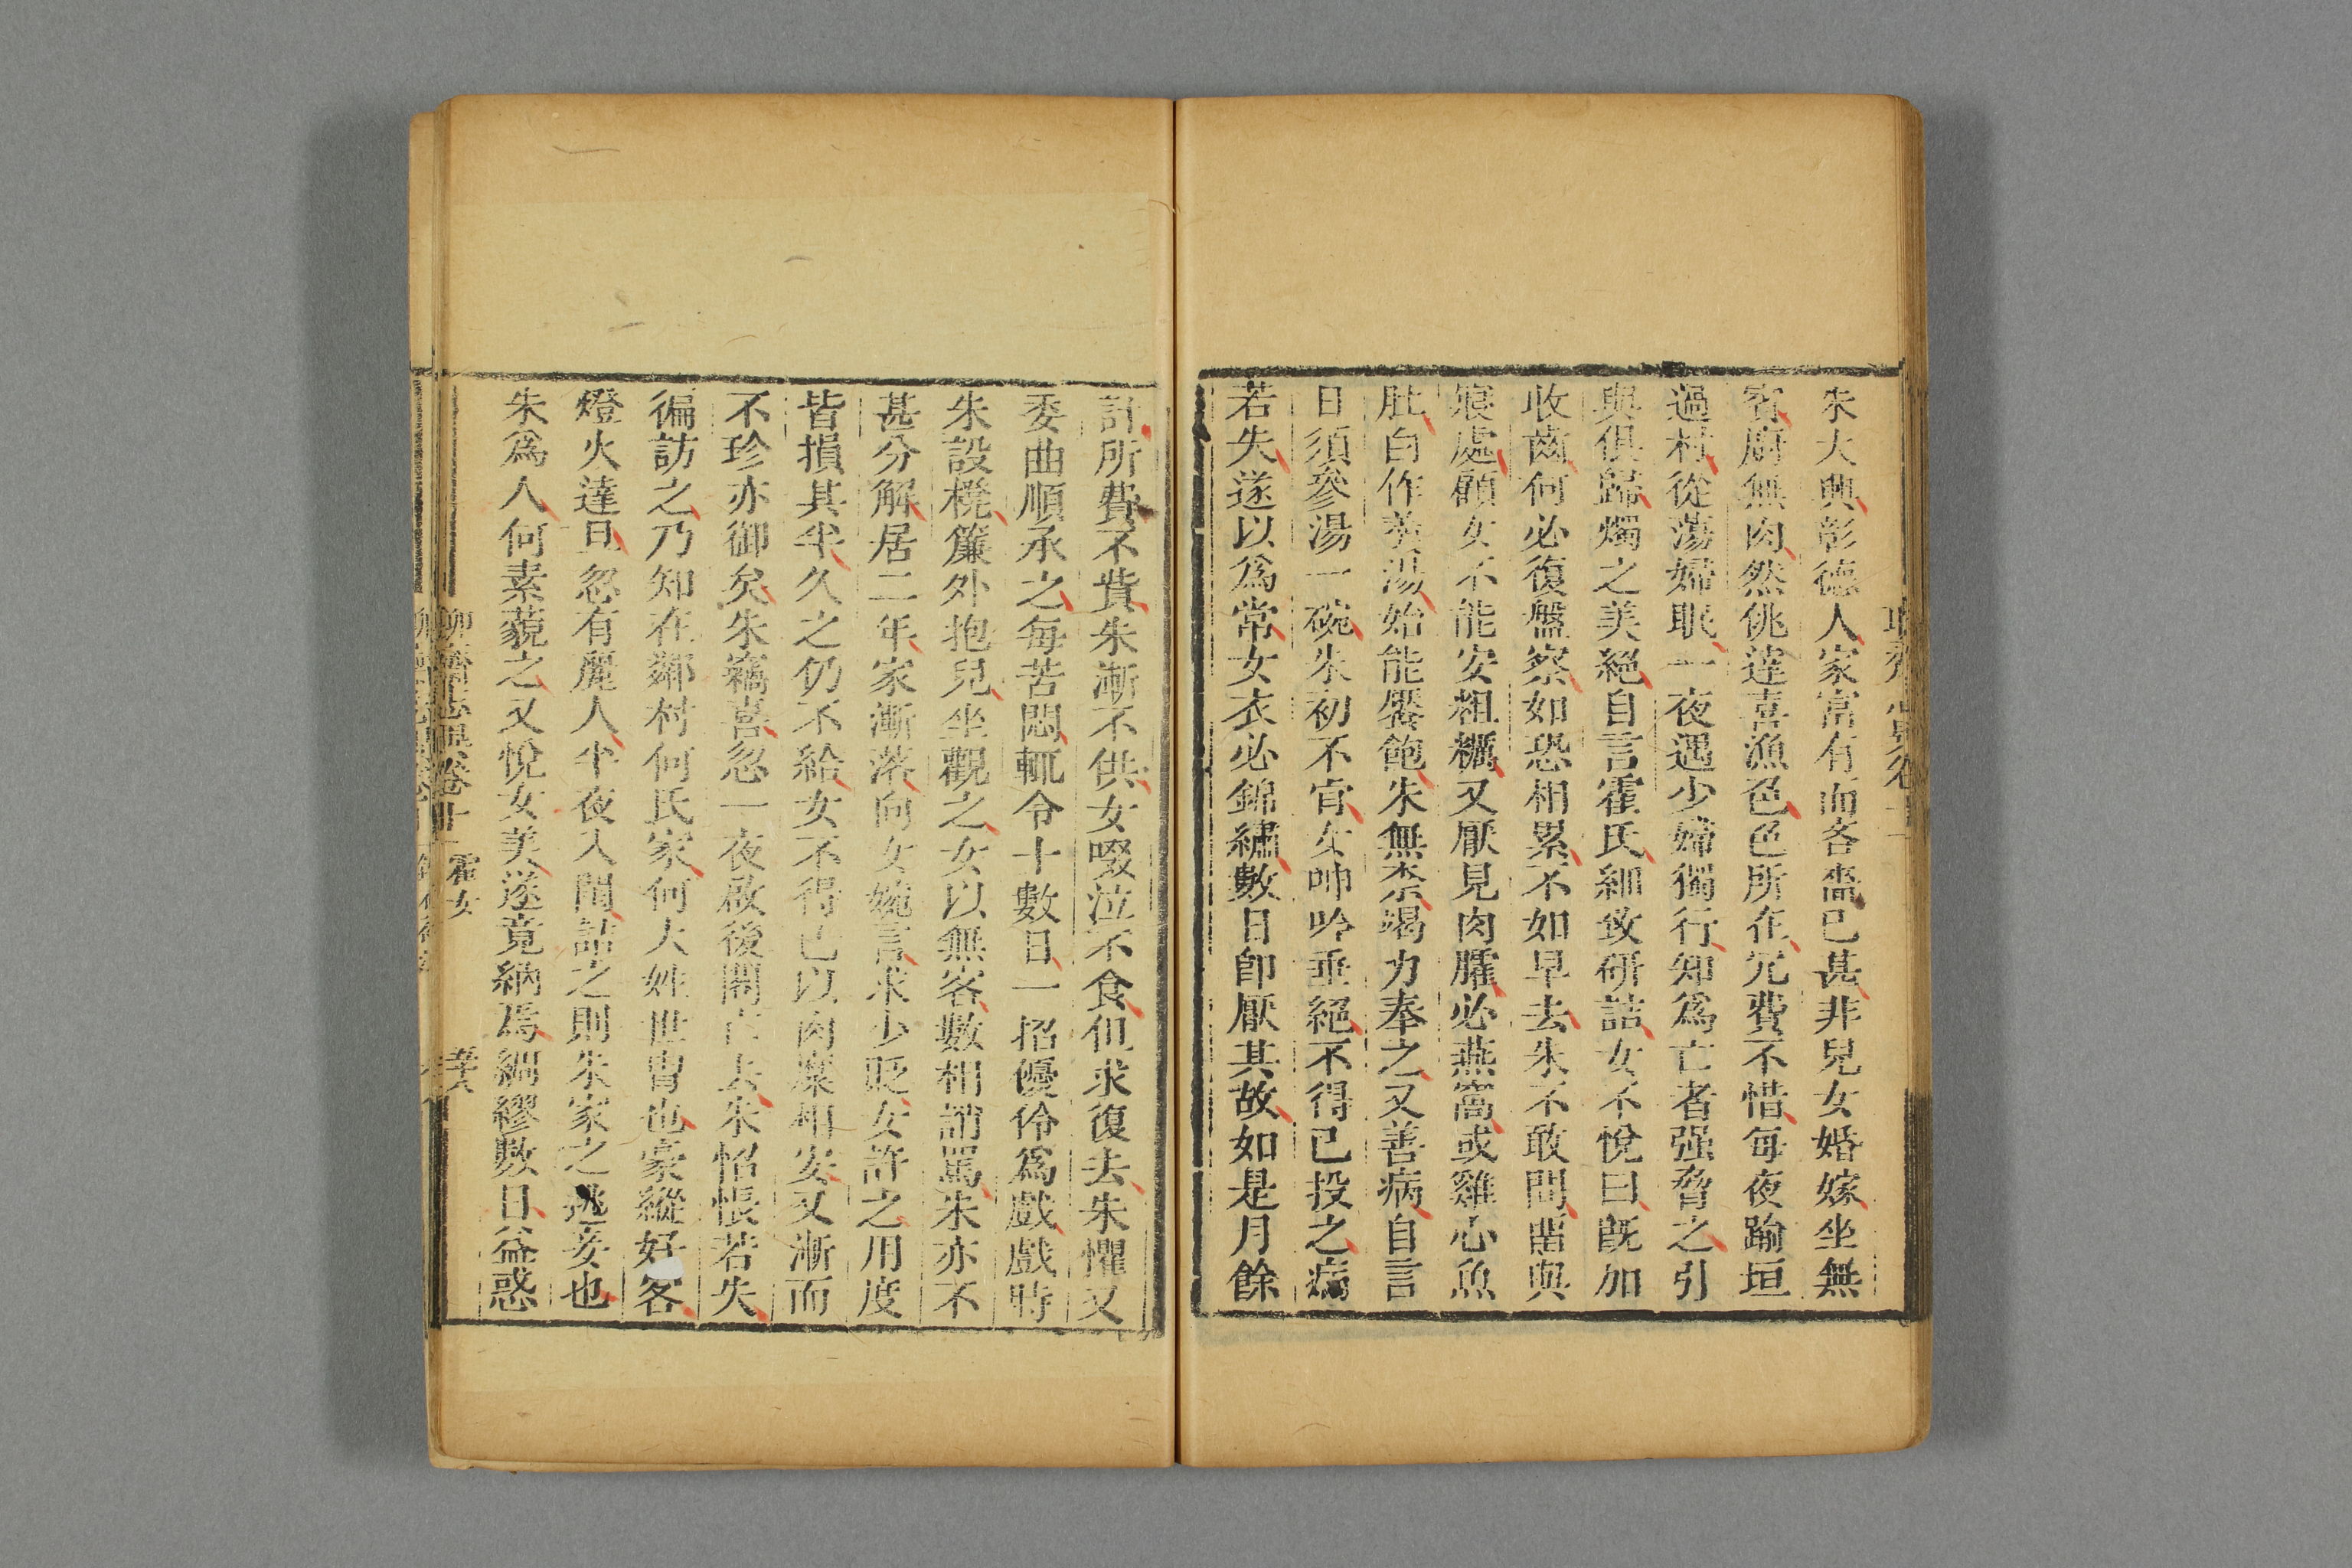 朱大興彰德人家富有而吝嗇已甚非兒女婚嫁坐無
賓廚無肉然佻達喜漁色色所在冗費不惜每夜踰垣
過村從蕩婦眠一夜遇少婦獨行知爲亡者强脅之引
與俱歸燭之美絕自言霍氏細致研詰女不悅曰旣加
收齒何必復盤察如恐相累不如早去朱不敢問留與
寢處顧女不能安粗糲又厭見肉臛必燕窩或雞心魚
肚白作羹湯始能饜飽朱無柰竭力奉之又善病自言
日須參湯一碗朱初不肯女呻吟垂絕不得已投之病
若失遂以爲常女衣必錦繡數日卽厭其故如是月餘
計所費不貲朱漸不供女啜泣不食但求復去朱懼又
委曲順承之每苦悶輒令十數日一招優伶爲戲戲時
朱設櫈簾外抱兒坐觀之女以無客數相誚罵朱亦不
甚分解居二年家漸落向女婉言求少貶女許之用度
皆損其半久之仍不給女不得已以肉糜相安又漸而
不珍亦御矣朱竊喜忽一夜啟後閣亡去朱怊悵若失
徧訪之乃知在鄰村何氏家何大姓世冑也豪縱好客
燈火達旦忽有麗人半夜入閨詰之則朱家之逃妾也
朱爲人何素藐之又悅女美遂竟納焉綢繆數日益惑
聊齋志異卷十一 霍女